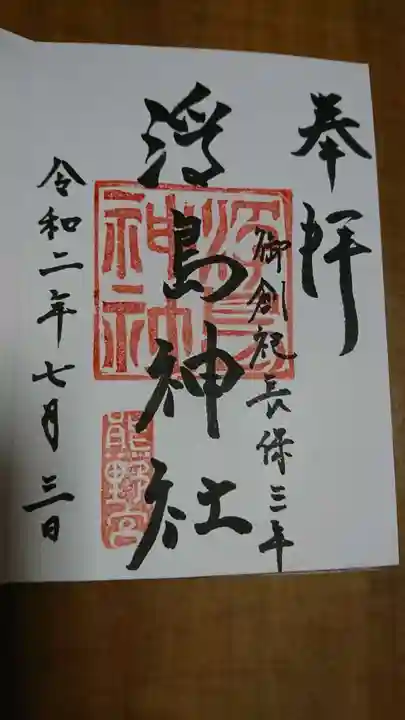 奉拝
御創祀長保三年
浮島神社
熊野宮
令和二年七月三日